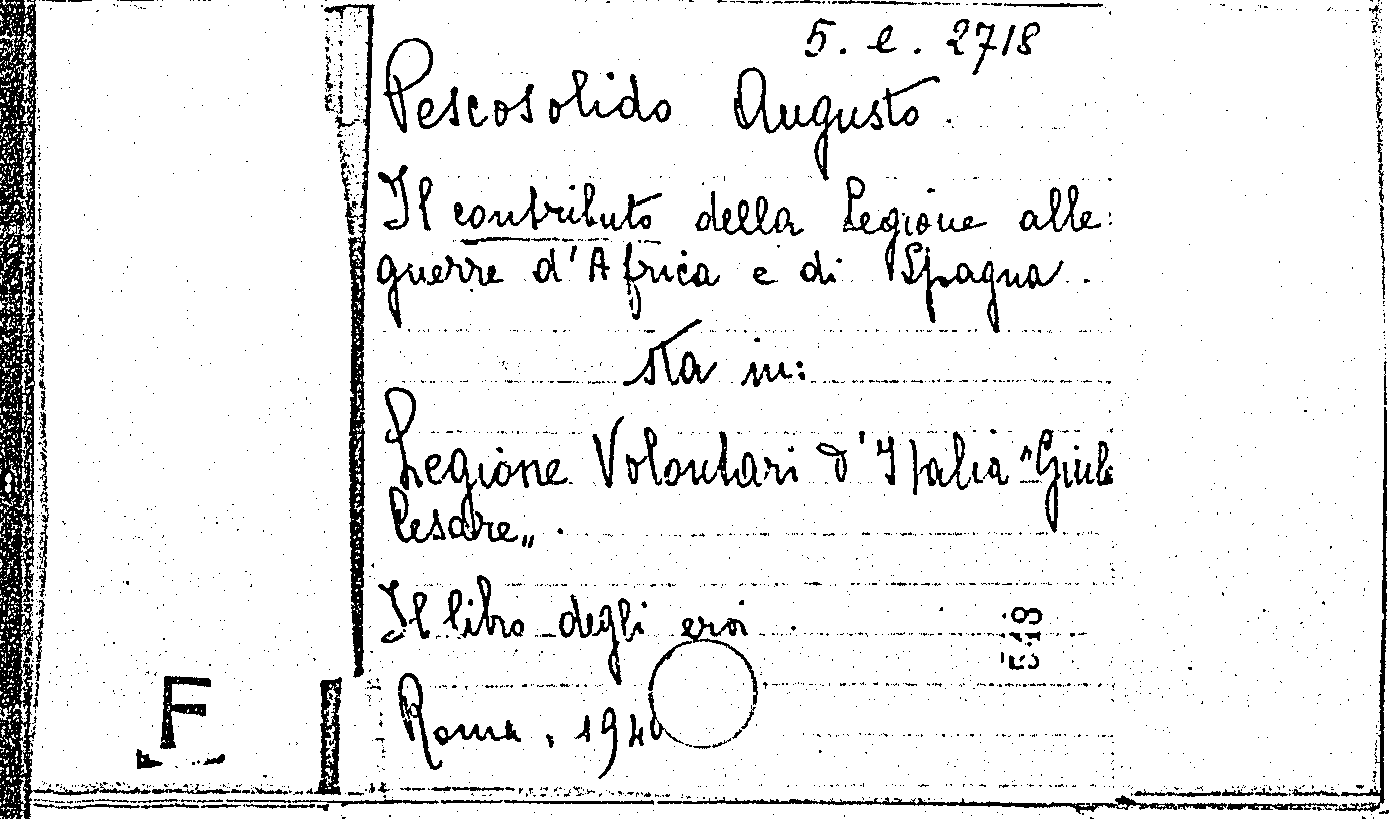 5. e. 2718
Pescosolido Augusto.
Il contributo della Legione alle
guerre d'Africa e di Spagna.
sta in:
Legione Volontari d'Italia "Giul
Cesare„.
Il libro degli eroi.
518
Roma, 194
F